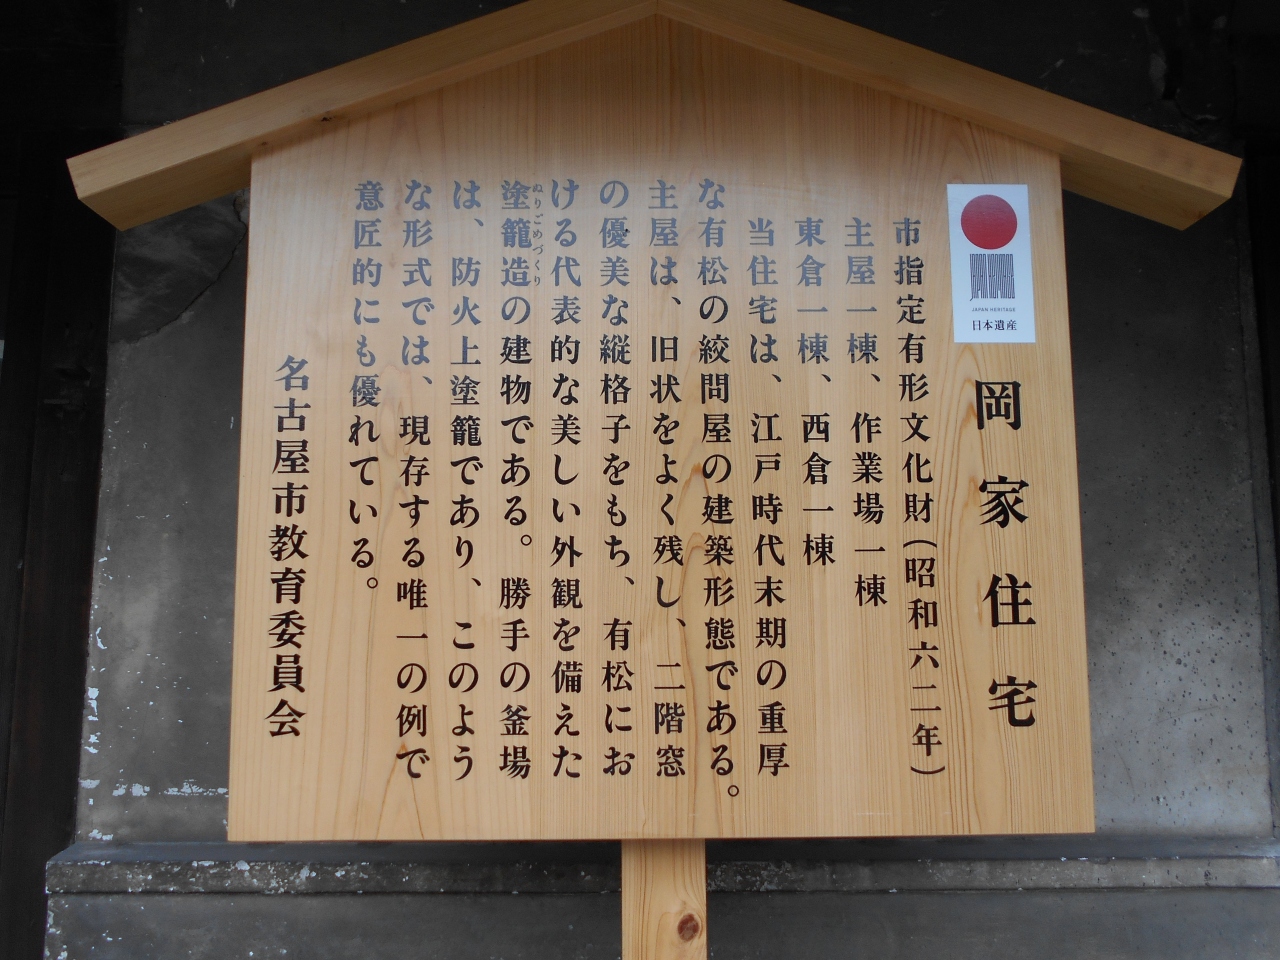 JAPAN HERITAGE
日本遺産
岡家住宅
市指定有形文化財(昭和六二年)
主屋一棟、作業場一棟
東倉一棟、西倉一棟
当住宅は、江戸時代末期の重厚
な有松の絞問屋の建築形態である。
主屋は、旧状をよく残し、二階窓
の優美な縦格子をもち、有松にお
ける代表的な美しい外観を備えた
塗籠造の建物である。勝手の釜場
ぬりごめづくり
は、防火上塗籠であり、このよう
な形式では、現存する唯一の例で
意匠的にも優れている。
名古屋市教育委員会